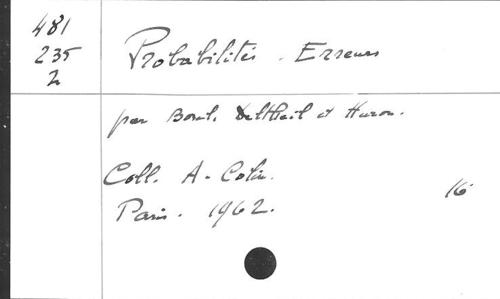 481
235
2
Probabilités. Erreurs
par Borel. Deltheil et Huron.
Coll. A. Colin.
Paris. 1962.
16